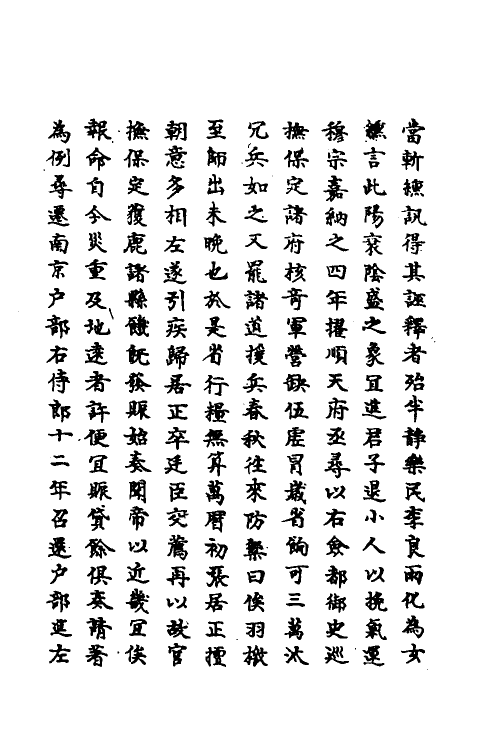 當斬纁訊得其誣釋者殆半靜樂民李良雨化為女
纁言此陽衰陰盛之象宜進君子退小人以挽氣運
穆宗嘉納之四年擢順天府丞尋以右僉都御史巡
撫保定諸府核奇軍營缺伍虛冒歲省餉可三萬汰
冗兵如之又罷諸道援兵春秋往來防繫曰俟羽檄
至師出未晚也於是省行糧無算萬曆初張居正擅
朝意多相左遂引疾歸居正卒廷臣交薦再以故官
撫保定獲鹿諸縣饑旣發賑始奏聞帝以近畿宜俟
報命自今災重及地遠者許便宜賑貸餘俱奏請著
為例尋遷南京户部右侍郎十二年召還户部進左